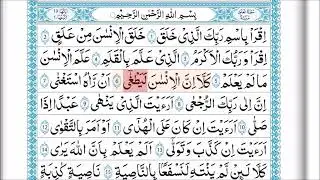 بِسْمِ اللّٰهِ الرَّحْمٰنِ الرَّحِيْمِ
اِقْرَاْ بِاسْمِ رَبِّكَ الَّذِيْ خَلَقَ ۚ ﴿١﴾ خَلَقَ الْاِنْسَانَ مِنْ عَلَقٍ ۚ ﴿٢﴾
اِقْرَاْ وَرَبُّكَ الْاَكْرَمُ ۙ ﴿٣﴾ الَّذِيْ عَلَّمَ بِالْقَلَمِ ۙ ﴿٤﴾ عَلَّمَ الْاِنْسَانَ
مَا لَمْ يَعْلَمْ ؕ ﴿٥﴾ كَلَّاۤ اِنَّ الْاِنْسَانَ لَيَطْغٰۤى ۙ ﴿٦﴾ اَنْ رَّاٰهُ اسْتَغْنٰى ؕ ﴿٧﴾
اِنَّ اِلٰى رَبِّكَ الرُّجْعٰى ؕ ﴿٨﴾ اَرَءَيْتَ الَّذِيْ يَنْهٰى ۙ ﴿٩﴾ عَبْدًا اِذَا
صَلّٰى ؕ ﴿١٠﴾ اَرَءَيْتَ اِنْ كَانَ عَلَى الْهُدٰۤى ۙ ﴿١١﴾ اَوْ اَمَرَ بِالتَّقْوٰى ؕ ﴿١٢﴾
اَرَءَيْتَ اِنْ كَذَّبَ وَتَوَلّٰى ؕ ﴿١٣﴾ اَلَمْ يَعْلَمْ بِاَنَّ اللّٰهَ يَرٰى ؕ ﴿١٤﴾
كَلَّا لَئِنْ لَّمْ يَنْتَهِ ۙ لَنَسْفَعًۢا بِالنَّاصِيَةِ ۙ ﴿١٥﴾ نَاصِيَةٍ كَاذِبَةٍ